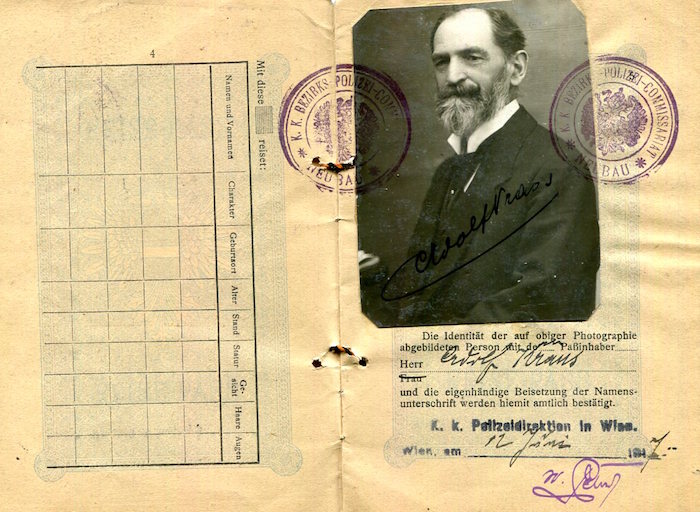 4
Mit diese reiset:
Namen und Vornamen
Charakter
Geburtsort
Alter
Stand
Statur
Ge-
sicht
Haare
Augen
K. K. BEZIRKS-POLIZEI-COMM
NEUBAU
K. K. BEZIRKS-POLIZEI-COMMISSARIAT
NEUBAU
Adolf Krauss
Die Identität der auf obiger Photographie
abgebildeten Person mit dem Paßinhaber
Herr Adolf Kraus
Frau
und die eigenhändige Beisetzung der Namens-
unterschrift werden hiemit amtlich bestätigt.
K. k. Polizeidirektion in Wien.
Wien, am 12 Juni 1917.